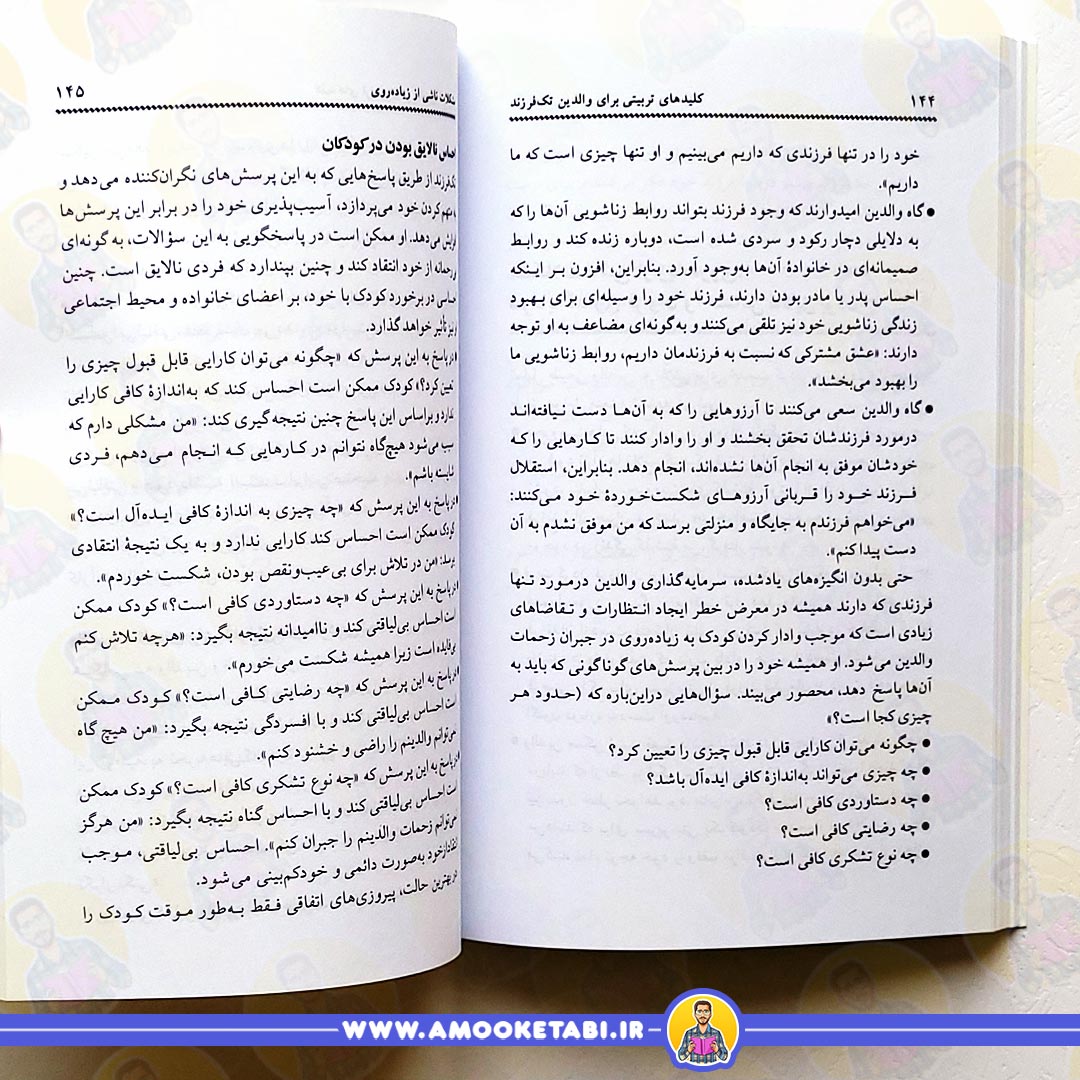 ۱۴۴
کلیدهای تربیتی برای والدین تک‌فرزند
خود را در تنها فرزندی که داریم می‌بینیم و او تنها چیزی است که ما
داریم».
● گاه والدین امیدوارند که وجود فرزند بتواند روابط زناشویی آن‌ها را که
به دلایلی دچار رکود و سردی شده است، دوباره زنده کند و روابط
صمیمانه‌ای در خانوادهٔ آن‌ها به‌وجود آورد. بنابراین، افزون بر اینکه
احساس پدر یا مادر بودن دارند، فرزند خود را وسیله‌ای برای بهبود
زندگی زناشویی خود نیز تلقی می‌کنند و به‌گونه‌ای مضاعف به او توجه
دارند: «عشق مشترکی که نسبت به فرزندمان داریم، روابط زناشویی ما
را بهبود می‌بخشد».
● گاه والدین سعی می‌کنند تا آرزوهایی را که به آن‌ها دست نیافته‌اند
درمورد فرزندشان تحقق بخشند و او را وادار کنند تا کارهایی را که
خودشان موفق به انجام آن‌ها نشده‌اند، انجام دهد. بنابراین، استقلال
فرزند خود را قربانی آرزوهای شکست‌خوردهٔ خود می‌کنند:
«می‌خواهم فرزندم به جایگاه و منزلتی برسد که من موفق نشدم به آن
دست پیدا کنم».
حتی بدون انگیزه‌های یادشده، سرمایه‌گذاری والدین درمورد تنها
فرزندی که دارند همیشه در معرض خطر ایجاد انتظارات و تقاضاهای
زیادی است که موجب وادار کردن کودک به زیاده‌روی در جبران زحمات
والدین می‌شود. او همیشه خود را در بین پرسش‌های گوناگونی که باید به
آن‌ها پاسخ دهد، محصور می‌بیند. سؤال‌هایی دراین‌باره که (حدود هر
چیزی کجا است؟»
● چگونه می‌توان کارایی قابل قبول چیزی را تعیین کرد؟
● چه چیزی می‌تواند به‌اندازهٔ کافی ایده‌آل باشد؟
● چه دستاوردی کافی است؟
● چه رضایتی کافی است؟
● چه نوع تشکری کافی است؟
ناشی از زیاده‌روی
۱۴۵
احساس نالایق بودن در کودکان
تک‌فرزند از طریق پاسخ‌هایی که به این پرسش‌های نگران‌کننده می‌دهد و
کردن خود می‌پردازد، آسیب‌پذیری خود را در برابر این پرسش‌ها
افزایش می‌دهد. او ممکن است در پاسخگویی به این سؤالات، به گونه‌ای
بی‌رحمانه از خود انتقاد کند و چنین بپندارد که فردی نالایق است. چنین
احساسی در برخورد کودک با خود، بر اعضای خانواده و محیط اجتماعی
نیز تأثیر خواهد گذارد.
در پاسخ به این پرسش که «چگونه می‌توان کارایی قابل قبول چیزی را
تعیین کرد؟» کودک ممکن است احساس کند که به‌اندازهٔ کافی کارایی
ندارد و براساس این پاسخ چنین نتیجه‌گیری کند: «من مشکلی دارم که
سبب می‌شود هیچ‌گاه نتوانم در کارهایی که انجام می‌دهم، فردی
شایسته باشم».
در پاسخ به این پرسش که «چه چیزی به اندازهٔ کافی ایده‌آل است؟»
کودک ممکن است احساس کند کارایی ندارد و به یک نتیجهٔ انتقادی
برسد: «من در تلاش برای بی‌عیب‌ونقص بودن، شکست خوردم».
در پاسخ به این پرسش که «چه دستاوردی کافی است؟» کودک ممکن
است احساس بی‌لیاقتی کند و ناامیدانه نتیجه بگیرد: «هرچه تلاش کنم
بی‌فایده است زیرا همیشه شکست می‌خورم».
در پاسخ به این پرسش که «چه رضایتی کافی است؟» کودک ممکن
است احساس بی‌لیاقتی کند و با افسردگی نتیجه بگیرد: «من هیچ گاه
نمی‌توانم والدینم را راضی و خشنود کنم».
در پاسخ به این پرسش که «چه نوع تشکری کافی است؟» کودک ممکن
است احساس بی‌لیاقتی کند و با احساس گناه نتیجه بگیرد: «من هرگز
نمی‌توانم زحمات والدینم را جبران کنم». احساس بی‌لیاقتی، موجب
انتقاد از خود به‌صورت دائمی و خودکم‌بینی می‌شود.
در بهترین حالت، پیروزی‌های اتفاقی فقط به‌طور موقت کودک را
WWW.AMOOKETABI.IR